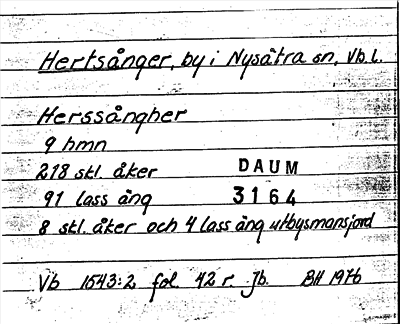 Hertsånger, by i Nysätra sn, Vb. l.
Herssångher
9 hmn
218 skl. åker DAUM
91 lass äng 3164
8 skl. åker och 4 lass äng utbysmansjord
Vb 1543:2 fol. 42 r. Jb. BH 1976